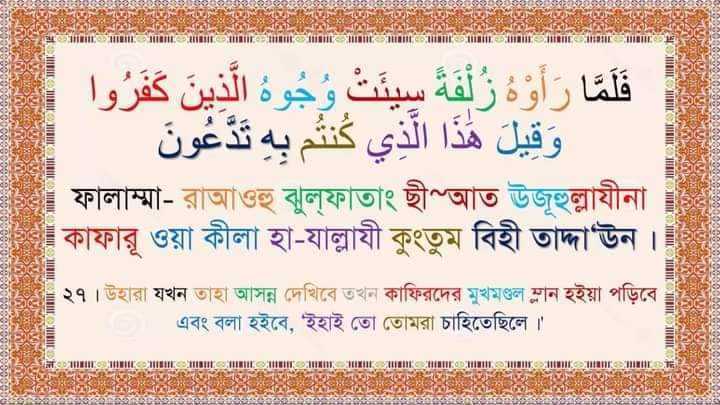 فَلَمَّا رَأَوْهُ زُلْفَةً سِيئَتْ وُجُوهُ الَّذِينَ كَفَرُوا
وَقِيلَ هَٰذَا الَّذِي كُنتُم بِهِ تَدَّعُونَ
ফালাম্মা- রাআওহু ঝুল্‌ফাতাং ছী~আত উজূহুল্লাযীনা
কাফারূ ওয়া কীলা হা-যাল্লাযী কুংতুম বিহী তাদ্দা‘ঊন ।
২৭ । উহারা যখন তাহা আসন্ন দেখিবে তখন কাফিরদের মুখমণ্ডল ম্লান হইয়া পড়িবে
এবং বলা হইবে, ‘ইহাই তো তোমরা চাহিতেছিলে ।’